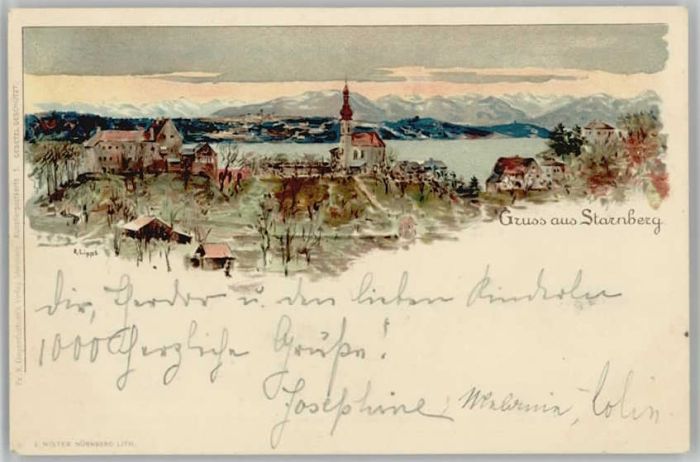 Gruss aus Starnberg
R. Lipps
Dir, Gerdor u. den lieben Kinderln
1000 Herzliche Grüße!
Josephine, Melanie, Colin.
E. NISTER NÜRNBERG LITH.